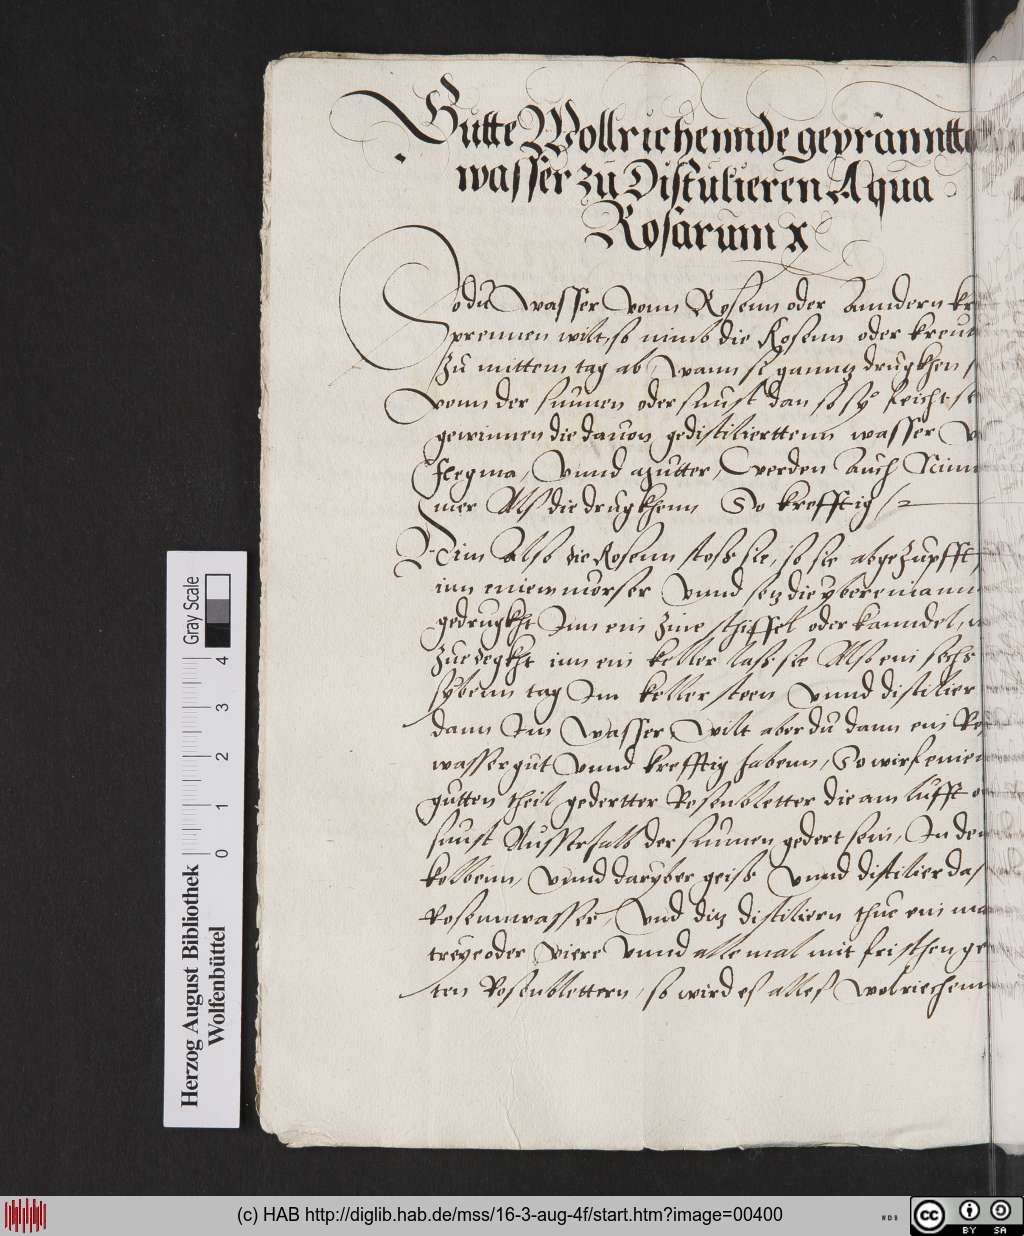 Gutte Wollricheннde gepränntte
wasser zu Distulieren Aqua
Rosarum x
So du wasser vonn Rosenn oder anndern
prennen wilt, so nimb die Rosenn oder kreut
zu mittem tag ab, wann sÿ ganntz drugkhen
vonn der sunnen oder sunst dan so sÿ feicht
gewinnen die dauon gedistilierttenn wasser
flegma, vnnd werden auch Nim
mer Als die drugkhenn So krefftig
Nim also die Rosenn stoss sie, so sie abgezupfft
inn einem morser vnnd setz die yber einann
gedrugkht Inn ein zine schiffel oder kanndel,
Zuedegkht inn ein keller lass sie Also ein sechs
sybenn tag Im keller steen vnnd distilier
dann Im wasser, wilt aber du dann ein Ro
wasser gut vnnd krefftig habenn, So wirf einen
gutten theil gedertter Rosenbletter die am lufft
sunst Ausserhalb der sunnen gedert sein, In den
kolbenn, vnnd daryber geiss vnnd distilier das
Rosennwasser, vnd ditz distiliern thue ein ma
treÿ oder viere vnnd alle mal mit frischen ge
ten Rosenblettern, so wird es alles wolriechenn
Herzog August Bibliothek
Wolfenbüttel
0 1 2 3 4
Gray Scale
(c) HAB http://diglib.hab.de/mss/16-3-aug-4f/start.htm?image=00400
cc BY SA